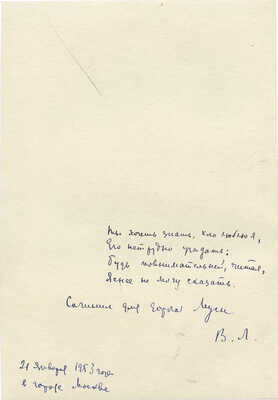 Ты хочешь знать, кого люблю я,
Его нетрудно угадать;
Будь повнимательней, читая,
Яснее не могу сказать.
Сочинил для Люси
В. Л.
21 января 1953 года
в городе Москве